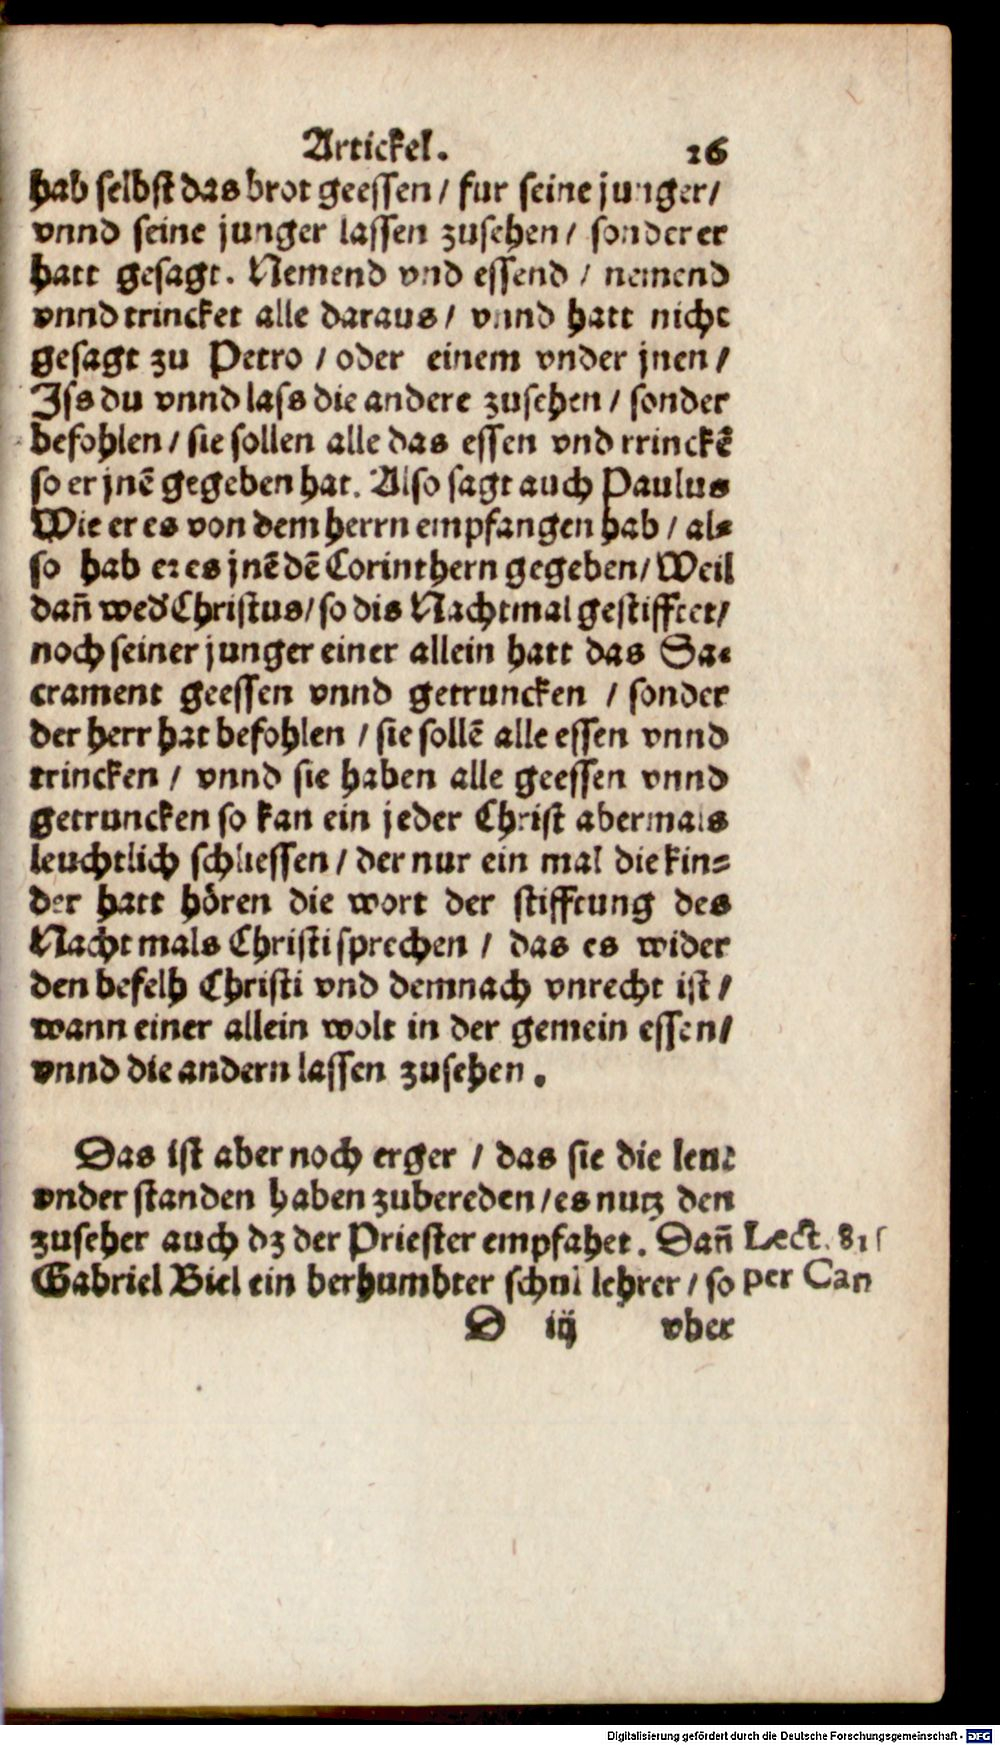 Artickel. 16
hab selbst das brot geessen / fur seine junger/
vnnd seine junger lassen zusehen / sonder er
hatt gesagt. Nemend vnd essend / nemend
vnnd trincket alle daraus / vnnd hatt nicht
gesagt zu Petro / oder einem vnder jnen /
Iss du vnnd lass die andere zusehen / sonder
befohlen / sie sollen alle das essen vnd rrinckẽ
so er jnẽ gegeben hat. Also sagt auch Paulus
Wie er es von dem herrn empfangen hab / al⸗
so hab er es jnẽ dẽ Corinthern gegeben / Weil
dañ wed' Christus / so dis Nachtmal gestifftet /
noch seiner junger einer allein hatt das Sa⸗
crament geessen vnnd getruncken / sonder
der herr hat befohlen / sie sollẽ alle essen vnnd
trincken / vnnd sie haben alle geessen vnnd
getruncken so kan ein jeder Christ abermals
leuchtlich schliessen / der nur ein mal die kin⸗
der hatt hören die wort der stifftung des
Nachtmals Christi sprechen / das es wider
den befelh Christi vnd demnach vnrecht ist /
wann einer allein wolt in der gemein essen /
vnnd die andern lassen zusehen.
Das ist aber noch erger / das sie die leut
vnder standen haben zubereden / es nutz den
zuseher auch dz der Priester empfahet. Dañ
Gabriel Biel ein berhumbter schul lehrer / so
Lect. 81
per Can
D iij vber
Digitalisierung gefördert durch die Deutsche Forschungsgemeinschaft - DFG